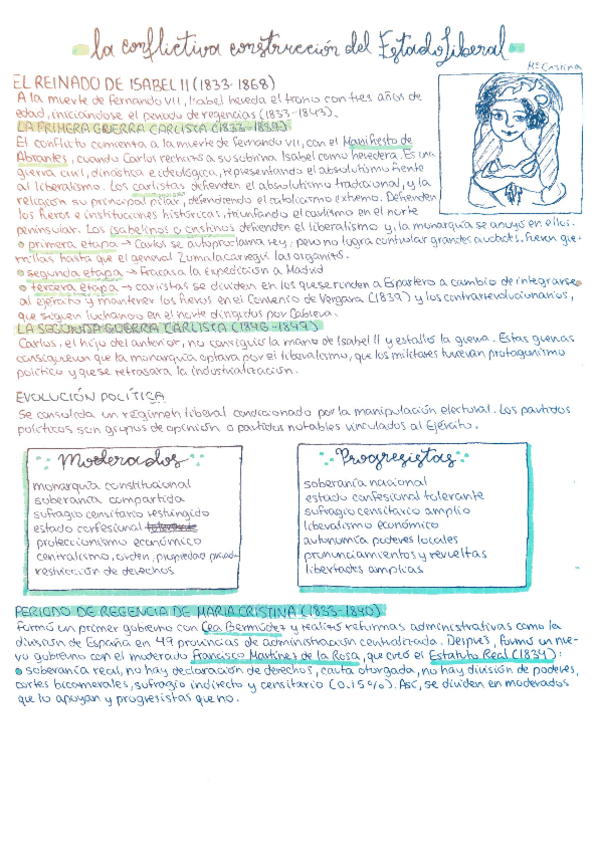 la conflictiva construcción del Estado Liberal
Mª Cristina
EL REINADO DE ISABEL II (1833-1868)
A la muerte de Fernando VII, Isabel hereda el trono con tres años de
edad, iniciándose el periodo de regencias (1833-1843).
LA PRIMERA GUERRA CARLISTA (1833-1839)
El conflicto comienza a la muerte de Fernando VII, con el Manifiesto de
Abrantes, cuando Carlos rechaza a su sobrina Isabel como heredera. Es una
guerra civil, dinástica e ideológica, representando el absolutismo frente
al liberalismo. Los carlistas defienden el absolutismo tradicional, y la
religión su principal pilar, defendiendo el catolicismo extremo. Defienden
los fueros e instituciones históricas, triunfando el carlismo en el norte
peninsular. Los isabelinos o cristinos defienden el liberalismo y, la monarquía se apoyó en ellos.
primera etapa → Carlos se autoproclama rey, pero no logra controlar grandes ciudades. Fueron gue-
rrillas hasta que el general Zumalacárregui las organizó.
segunda etapa → Fracasa la Expedición a Madrid
tercera etapa → carlistas se dividen en los que se rinden a Espartero a cambio de integrarse
al ejército y mantener los fueros en el Convenio de Vergara (1839) y los contrarrevolucionarios,
que siguen luchando en el norte dirigidos por Cabrera.
LA SEGUNDA GUERRA CARLISTA (1846-1849)
Carlos, el hijo del anterior, no consiguió la mano de Isabel II y estalló la guerra. Estas guerras
consiguieron que la monarquía optara por el liberalismo, que los militares tuvieran protagonismo
político y que se retrasara la industrialización.
EVOLUCIÓN POLÍTICA
Se consolida un régimen liberal condicionado por la manipulación electoral. Los partidos
políticos son grupos de opinión o partidos notables vinculados al Ejército.
Moderados
monarquía constitucional
soberanía compartida
sufragio censitario restringido
estado confesional
proteccionismo económico
centralismo, orden, propiedad privada
restricción de derechos
Progresistas
soberanía nacional
estado confesional tolerante
sufragio censitario amplio
liberalismo económico
autonomía poderes locales
pronunciamientos y revueltas
libertades amplias
PERIODO DE REGENCIA DE MARIA CRISTINA (1833-1840)
Formó un primer gobierno con Cea Bermúdez y realizó reformas administrativas como la
división de España en 49 provincias de administración centralizada. Después, formó un nue-
vo gobierno con el moderado Francisco Martínez de la Rosa, que creó el Estatuto Real (1834):
soberanía real, no hay declaración de derechos, carta otorgada, no hay división de poderes,
cortes bicamerales, sufragio indirecto y censitario (0.15%). Así, se dividen en moderados
que lo apoyan y progresistas que no.